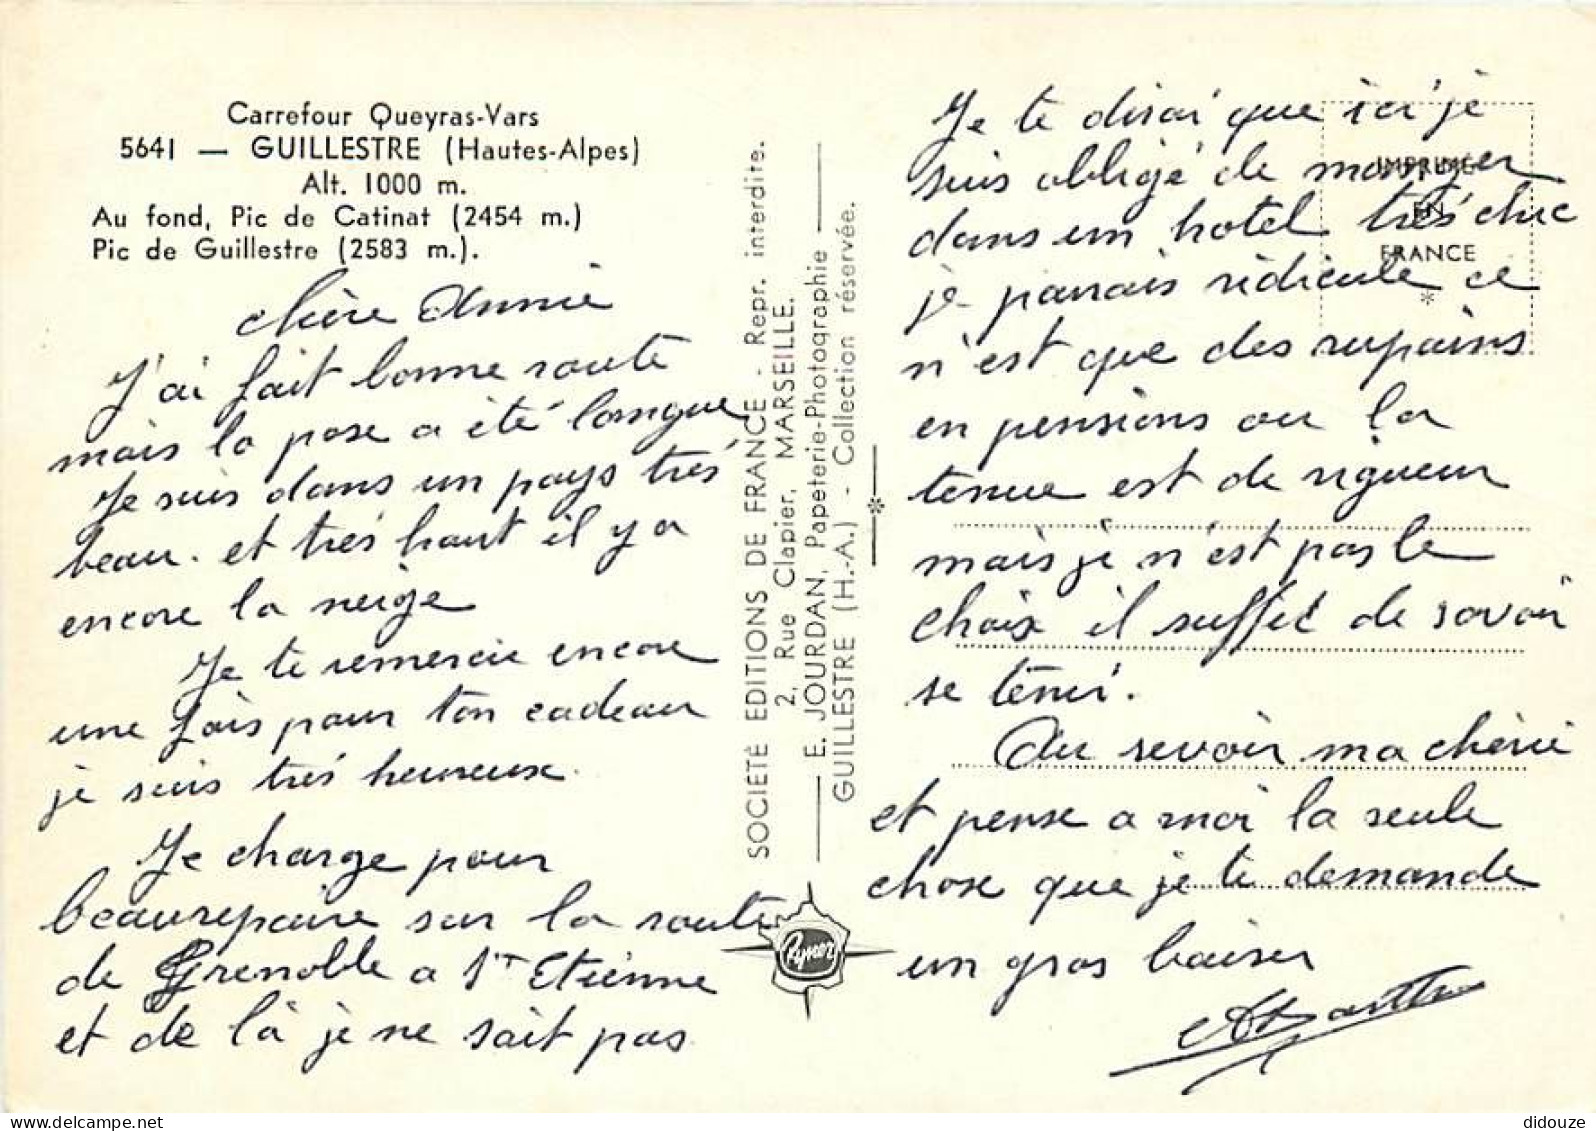 Carrefour Queyras-Vars
5641 — GUILLESTRE (Hautes-Alpes)
Alt. 1000 m.
Au fond, Pic de Catinat (2454 m.)
Pic de Guillestre (2583 m.).
chère Annie
J'ai fait bonne route
mais la pose a été longue
Je suis dans un pays très
beau. et très haut il y a
encore la neige
Je te remercie encore
une fois pour ton cadeau
je suis très heureux.
Je charge pour
beaurepaire sur la route
de Grenoble a St Etienne
et de là je ne sait pas
SOCIÉTÉ EDITIONS DE FRANCE - Repr. interdite.
2, Rue Clapier, MARSEILLE.
E. JOURDAN, Papeterie-Photographie
GUILLESTRE (H.-A.) - Collection réservée.
*
Ryner
IMPRIMÉ
EN
FRANCE
*
Je te dirai que ici je
suis obligé de manger
dans un hotel très chic
je parais ridicule ce
n'est que des rupains
en pensions ou la
tenue est de rigueur
mais je n'est pas le
choix il suffit de savoir
se tenir.
Au revoir ma chérie
et pense a moi la seule
chose que je te demande
un gros baiser
didouze